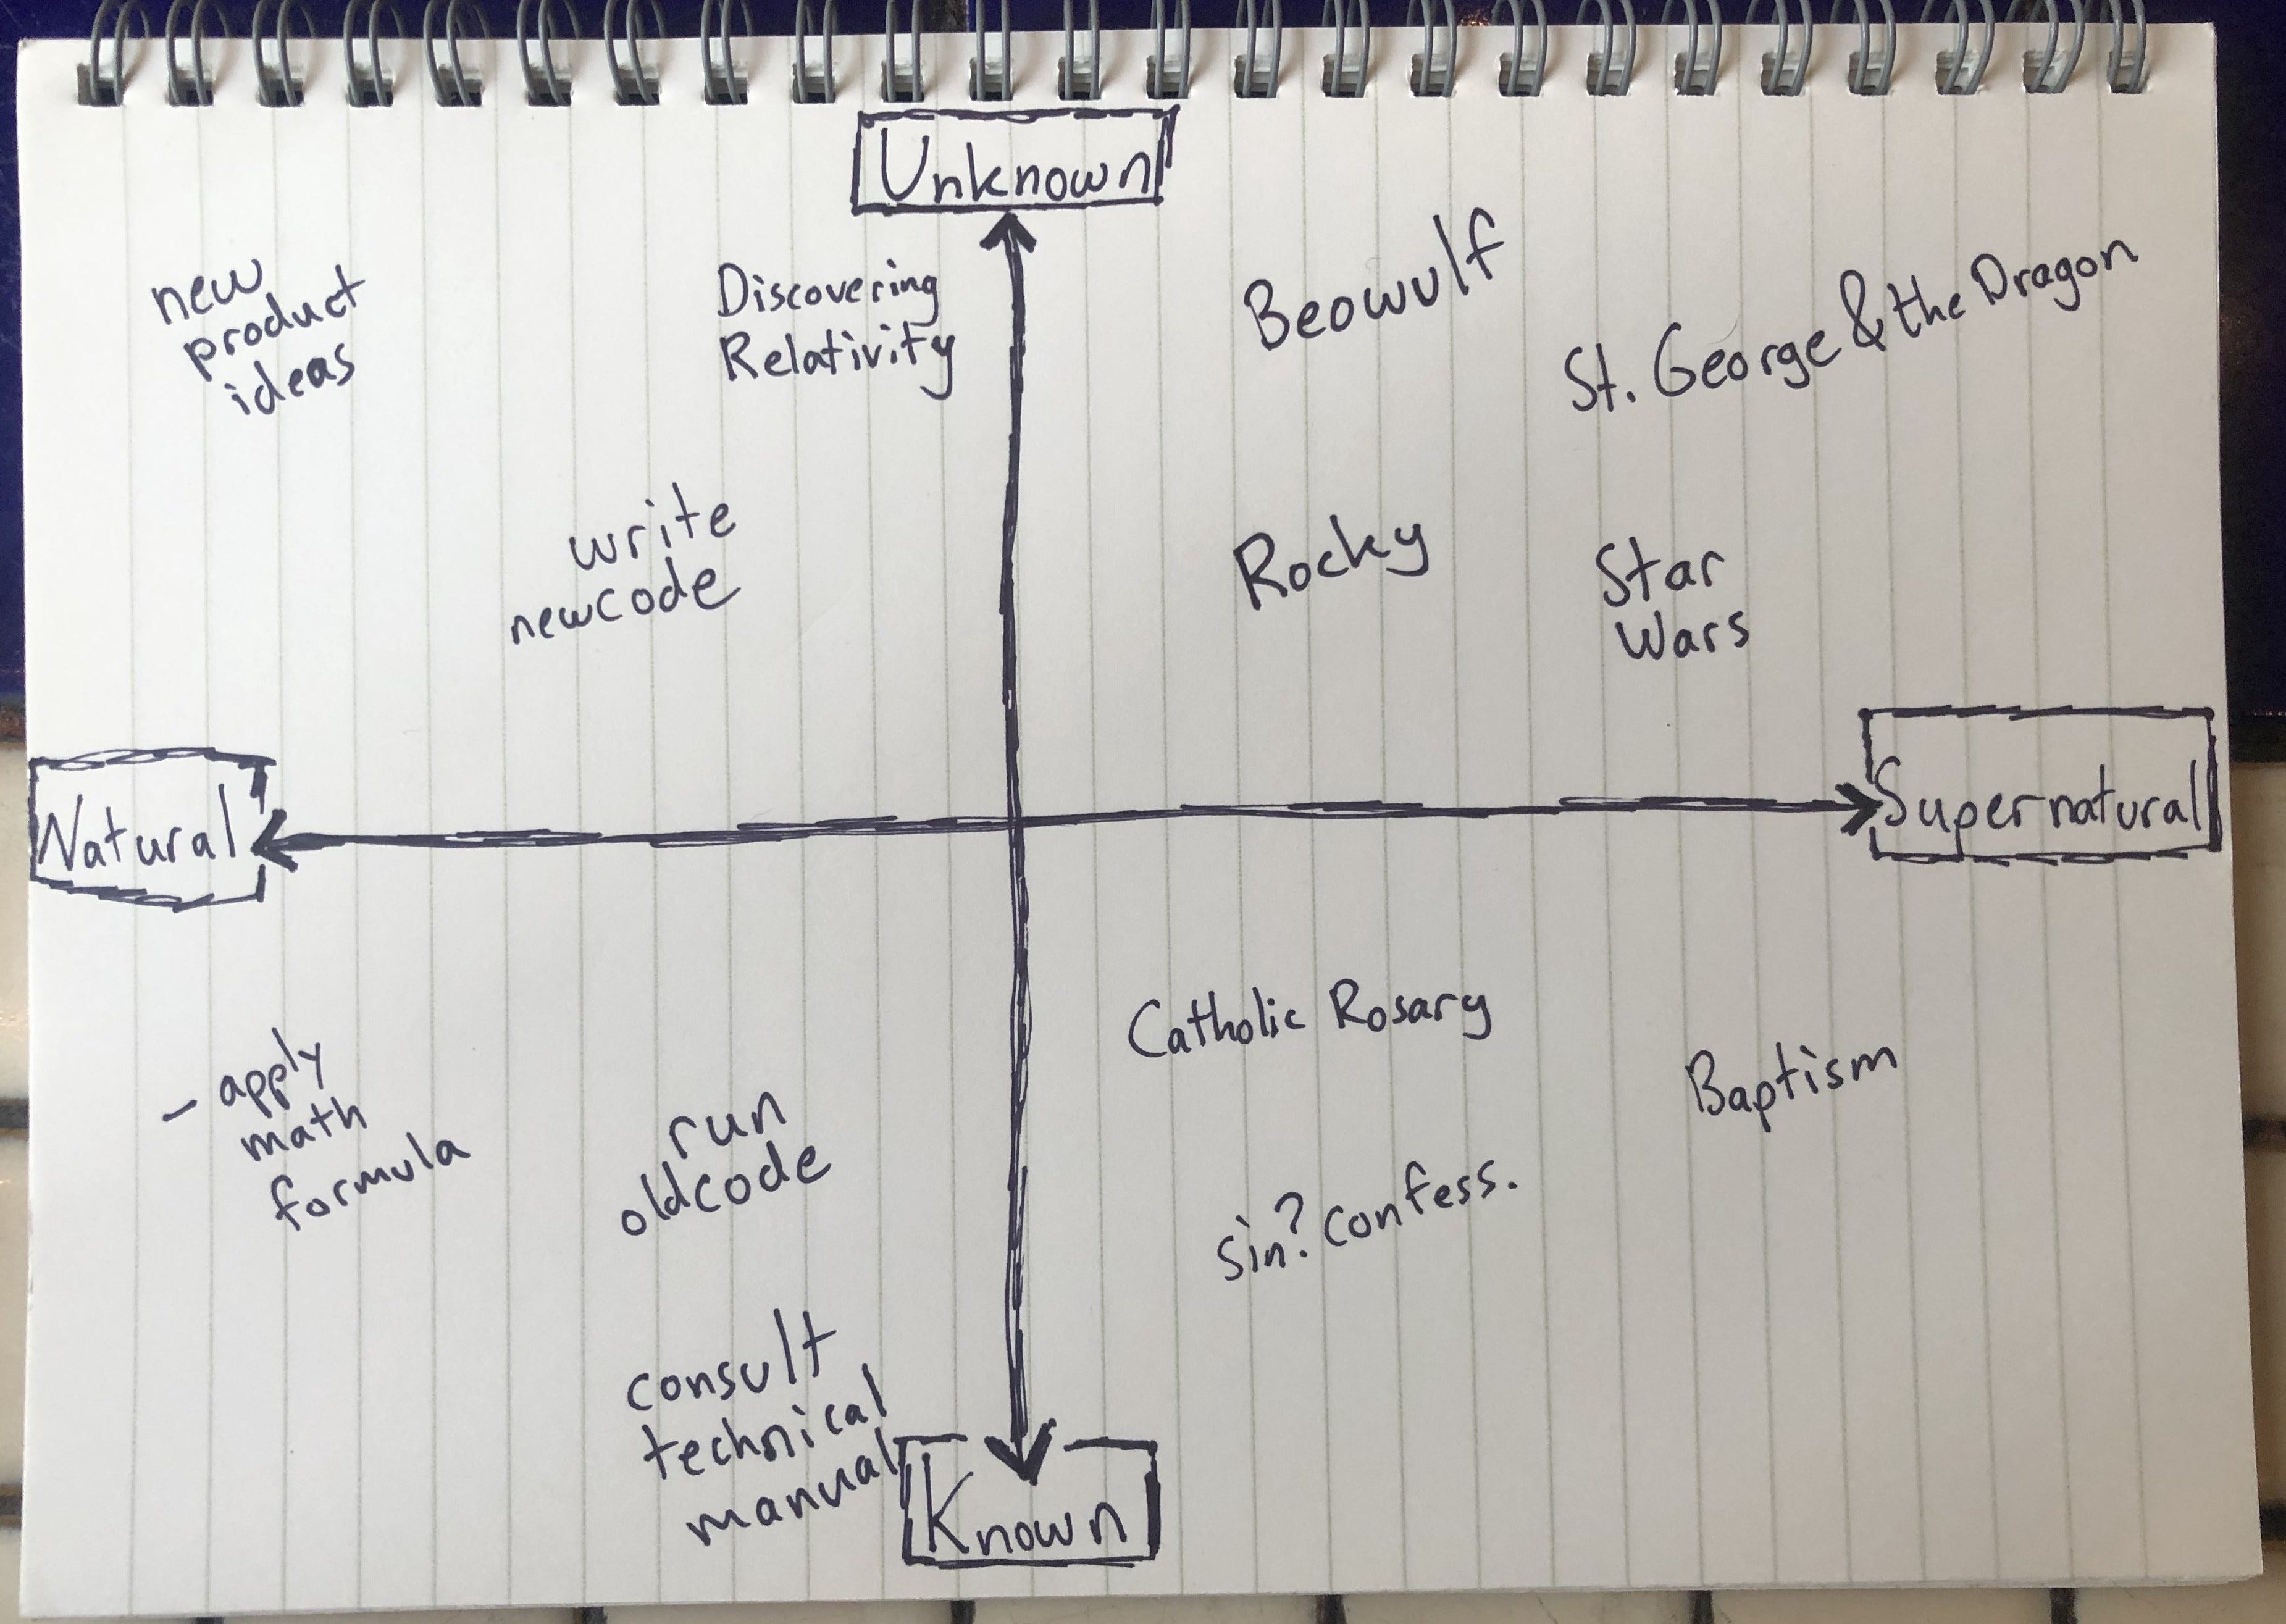 Unknown
new
product
ideas
Discovering
Relativity
Beowulf
St. George & the Dragon
write
newcode
Rocky
Star
Wars
Natural
Supernatural
- apply
math
formula
run
oldcode
consult
technical
manual
Catholic Rosary
Baptism
sin? confess.
Known